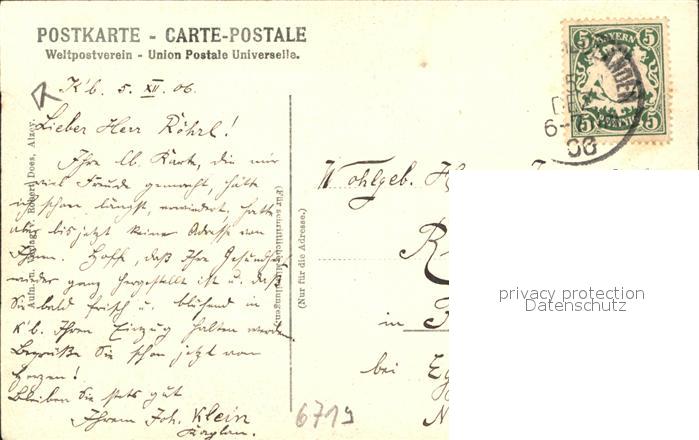 POSTKARTE - CARTE-POSTALE
Weltpostverein - Union Postale Universelle.
K'b. 5. XII. 06.
Lieber Herr Röhrl!
Ihre lb. Karte, die mir
viel Freude gemacht, hätte
ich schon längst erwiedert, hatte
aber bis jetzt keine Adresse von
Ihnen. Hoffe, daß Ihre Gesundheit
wieder ganz hergestellt ist u. daß
Sie bald frisch u. blühend in
K'b. Ihren Einzug halten werden.
Begrüße Sie schon jetzt von
Herzen!
Bleiben Sie stets gut
Ihrem Joh. Klein
Kaplan.
Aufn. u. Verlag v. Robert Does, Alzey.
(Für schriftliche Mitteilungen.)
(Nur für die Adresse.)
5 BAYERN 5
5 PFENNIG 5
5
DEZ
6-7
06
Wohlgeb. H
R
in
bei
N
6719
privacy protection
Datenschutz